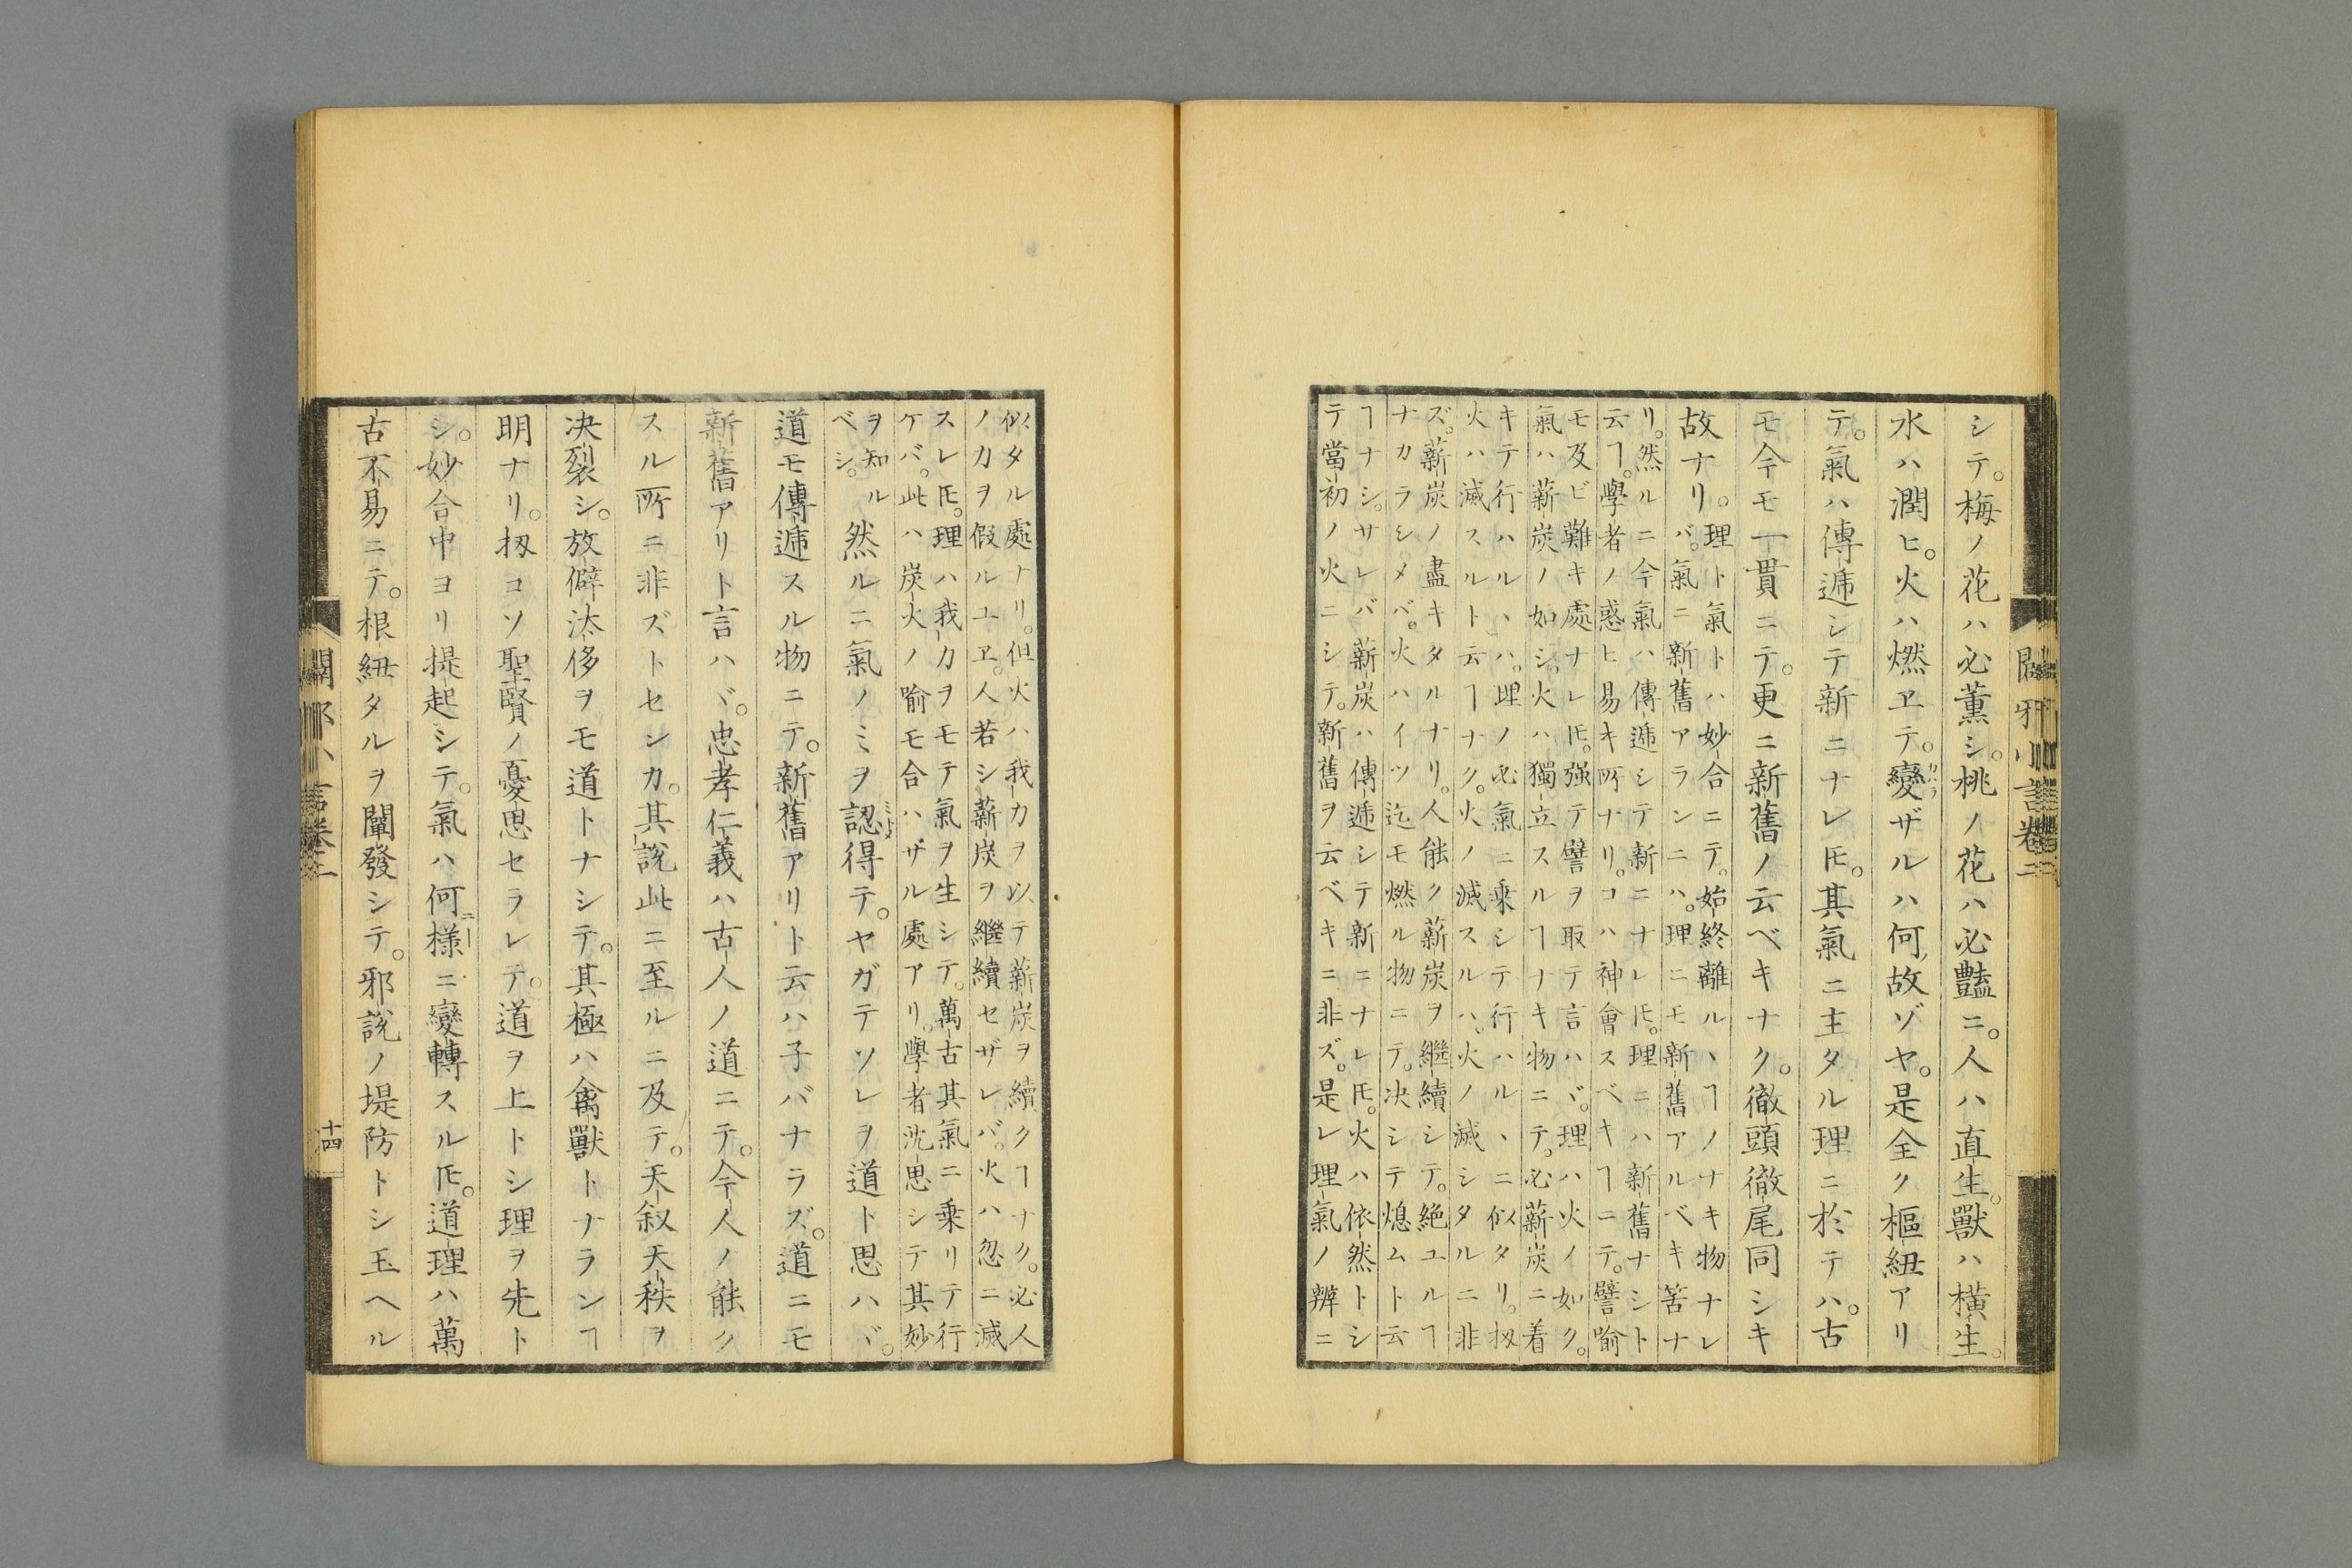 闢邪小言卷二
シテ。梅ノ花ハ必薫シ。桃ノ花ハ必豔ニ。人ハ直生。獸ハ橫生。
水ハ潤ヒ。火ハ燃ヱテ。變ザルハ何故ゾヤ。是全ク樞紐アリ
テ。氣ハ傳遞シテ新ニナレ𪜈。其氣ニ主タル理ニ於テハ。古
モ今モ一貫ニテ。更ニ新舊ノ云ベキナク。徹頭徹尾同シキ
故ナリ。
理ト氣トハ妙合ニテ。始終離ルヽヿノナキ物ナレ
バ。氣ニ新舊アランニハ。理ニモ新舊アルベキ筈ナ
リ。然ルニ今氣ハ傳遞シテ新ニナレ𪜈。理ニハ新舊ナシト
云ヿ。學者ノ惑ヒ易キ所ナリ。コハ神會スベキヿニテ。譬喩
モ及ビ難キ處ナレ𪜈。强テ譬ヲ取テ言ハヾ。理ハ火ノ如ク。
氣ハ薪炭ノ如シ。火ハ獨立スルヿナキ物ニテ。必薪炭ニ着
キテ行ハルヽハ。理ノ必氣ニ乘シテ行ハルヽニ似タリ。扨
火ハ滅スルト云ヿナク。火ノ滅スルハ、火ノ滅シタルニ非
ズ。薪炭ノ盡キタルナリ。人能ク薪炭ヲ繼續シテ。絶ユルヿ
ナカラシメバ。火ハイツ迄モ燃ル物ニテ。决シテ熄ムト云
ヿナシ。サレバ薪炭ハ傳遞シテ新ニナレ𪜈。火ハ依然トシ
テ當初ノ火ニシテ。新舊ヲ云ベキニ非ズ。是レ理氣ノ辨ニ
似タル處ナリ。但火ハ我力ヲ以テ薪炭ヲ續クヿナク。必人
ノカヲ假ルユヱ。人若シ薪炭ヲ繼續セザレバ。火ハ忽ニ滅
スレ𪜈。理ハ我力ヲモテ氣ヲ生シテ。萬古其氣ニ乘リテ行
ケバ。此ハ炭火ノ喩モ合ハザル處アリ。學者沈思シテ其妙
ヲ知ル
ベシ。
然ルニ氣ノミヲ認得テ。ヤガテソレヲ道ト思ハヾ。
道モ傳遞スル物ニテ。新舊アリト云ハ子バナラズ。道ニモ
新舊アリト言ハヾ。忠孝仁義ハ古人ノ道ニテ。今人ノ能ク
スル所ニ非ズトセンカ。其說此ニ至ルニ及テ。天叙天秩ヲ
决裂シ。放僻汰侈ヲモ道トナシテ。其極ハ禽獸トナランヿ
明ナリ。扨コソ聖賢ノ憂思セラレテ。道ヲ上トシ理ヲ先ト
シ。妙合中ヨリ提起シテ。氣ハ何樣ニ變轉スル𪜈。道理ハ萬
古不易ニテ。根紐タルヲ闡發シテ。邪說ノ堤防トシ玉ヘル
闢邪小言卷二
十四